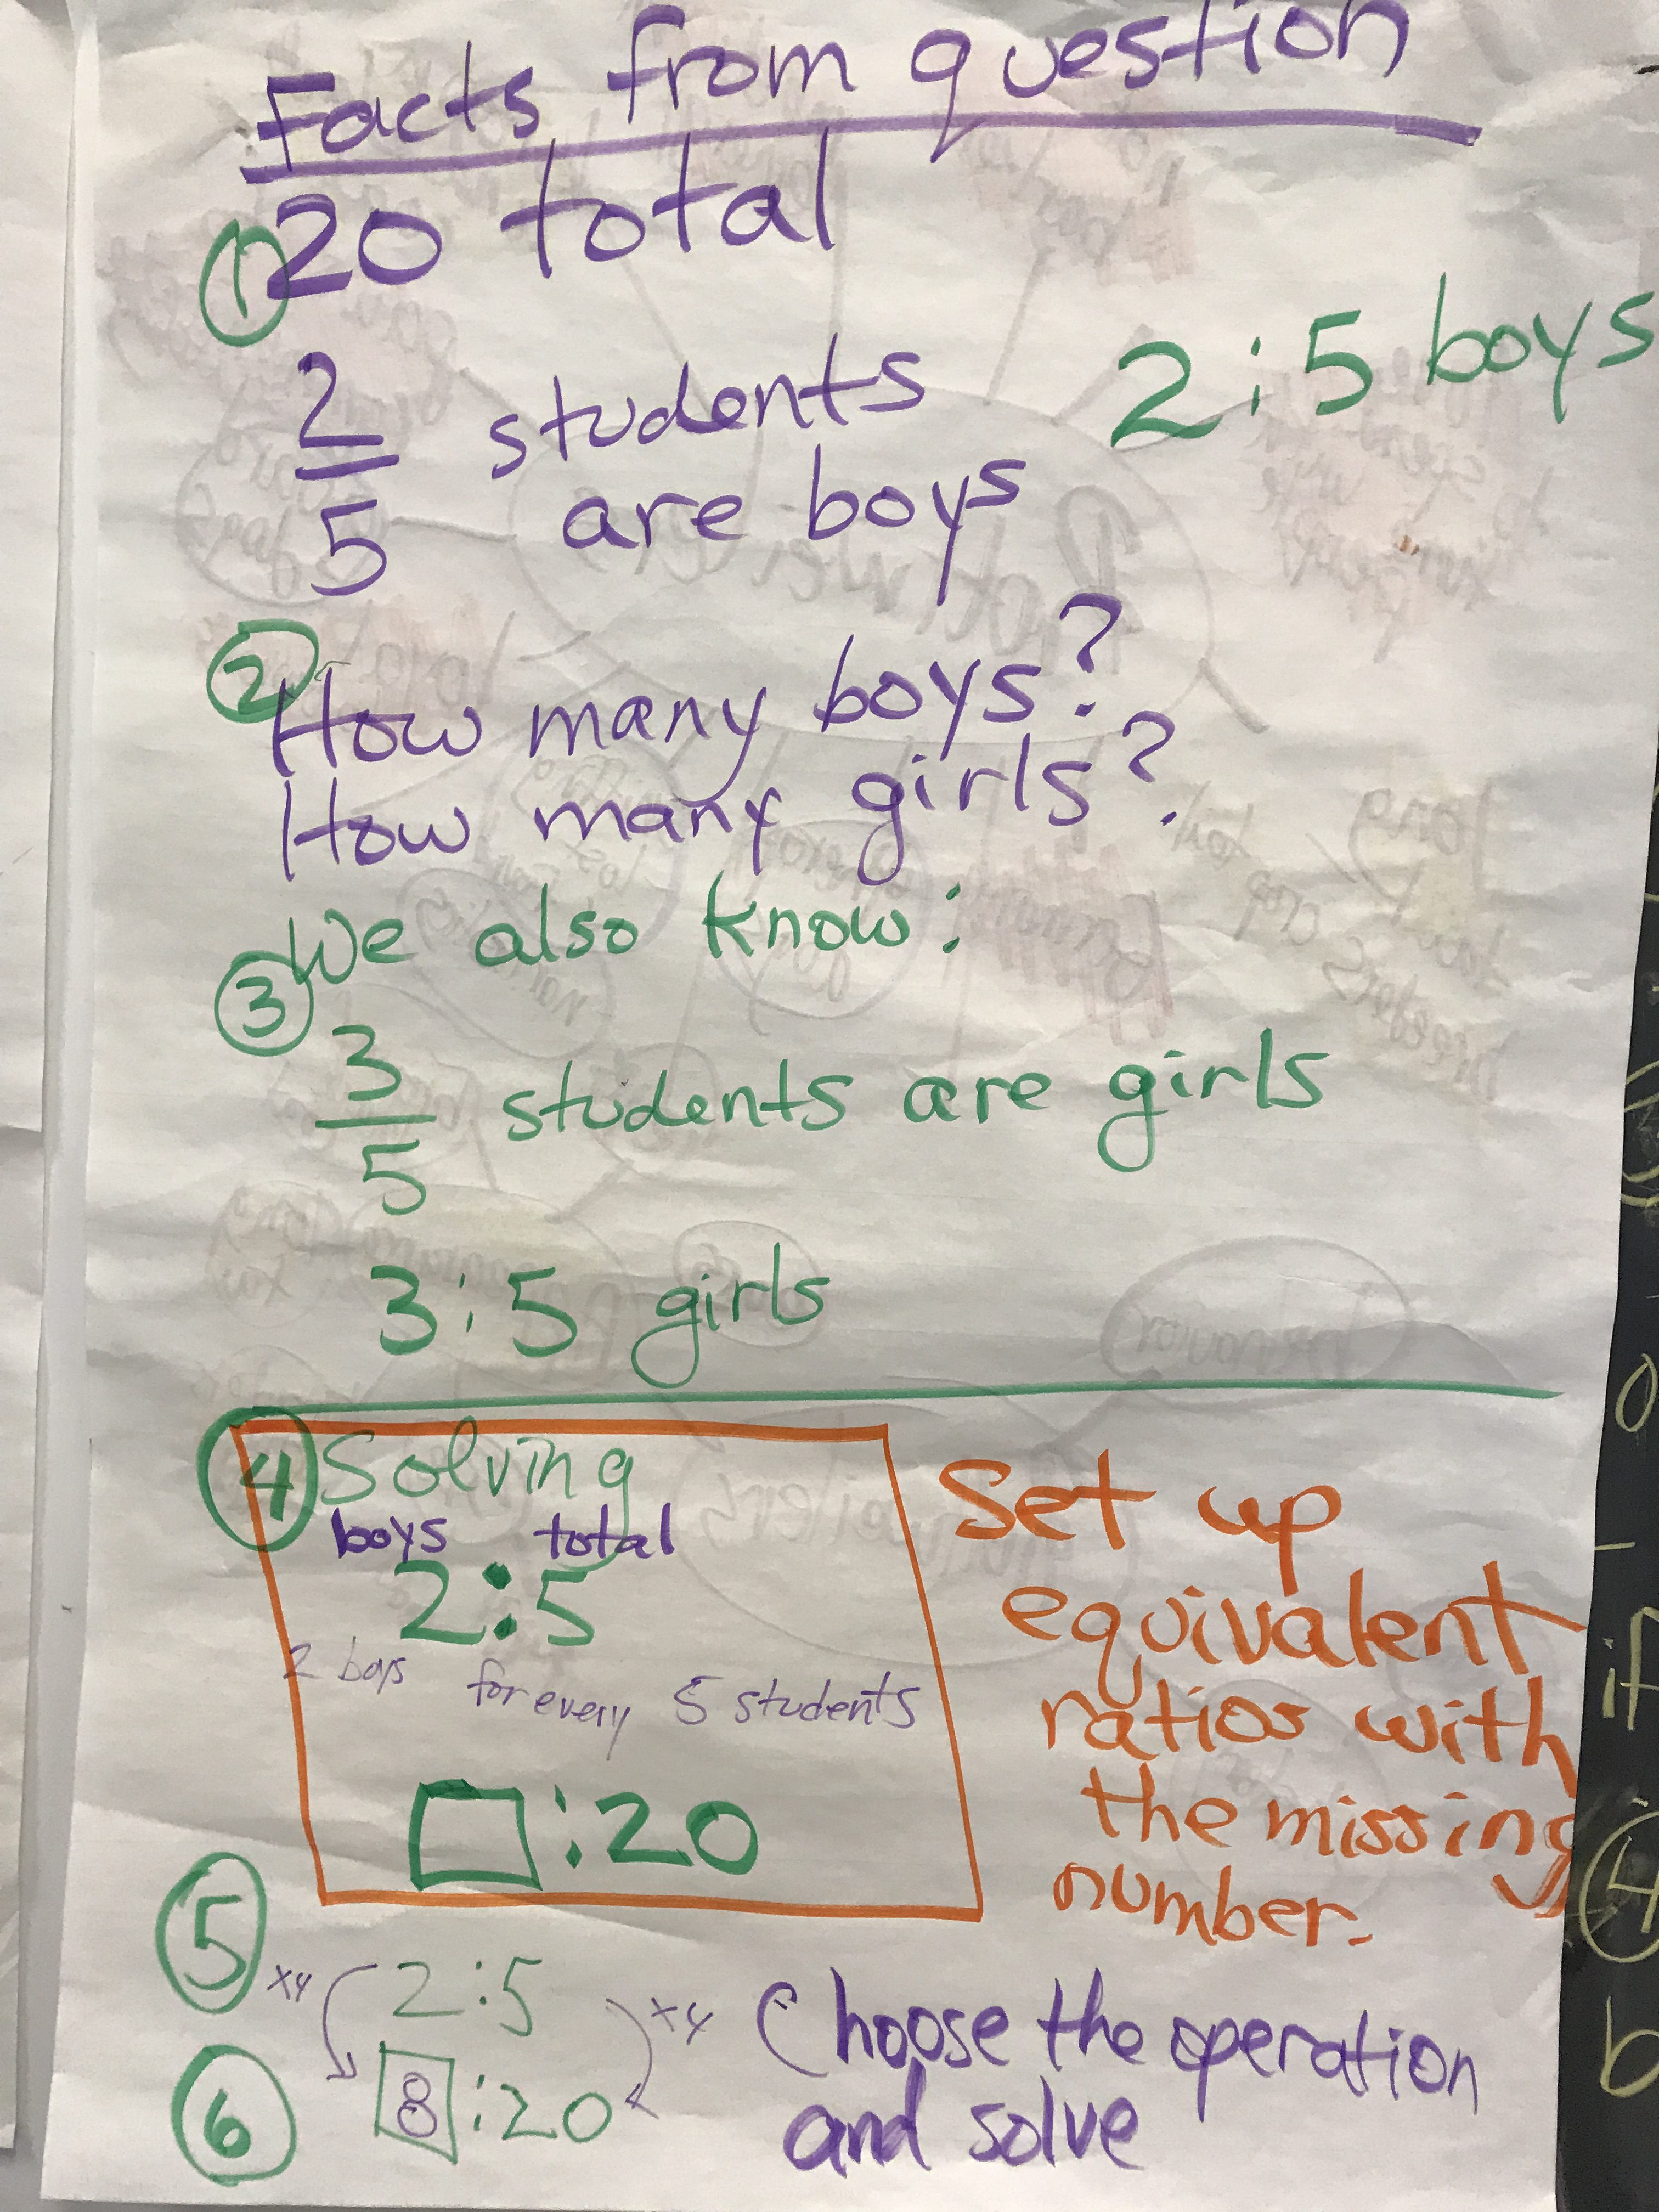 Facts from question
① 20 total
2/5 students are boys
2:5 boys
② How many boys?
How many girls?
③ We also know:
3/5 students are girls
3:5 girls
④ Solving
boys total
2:5
2 boys for every 5 students
□:20
Set up
equivalent
ratios with
the missing
number.
⑤ x4 2:5 x4
⑥ 8:20
Choose the operation
and solve